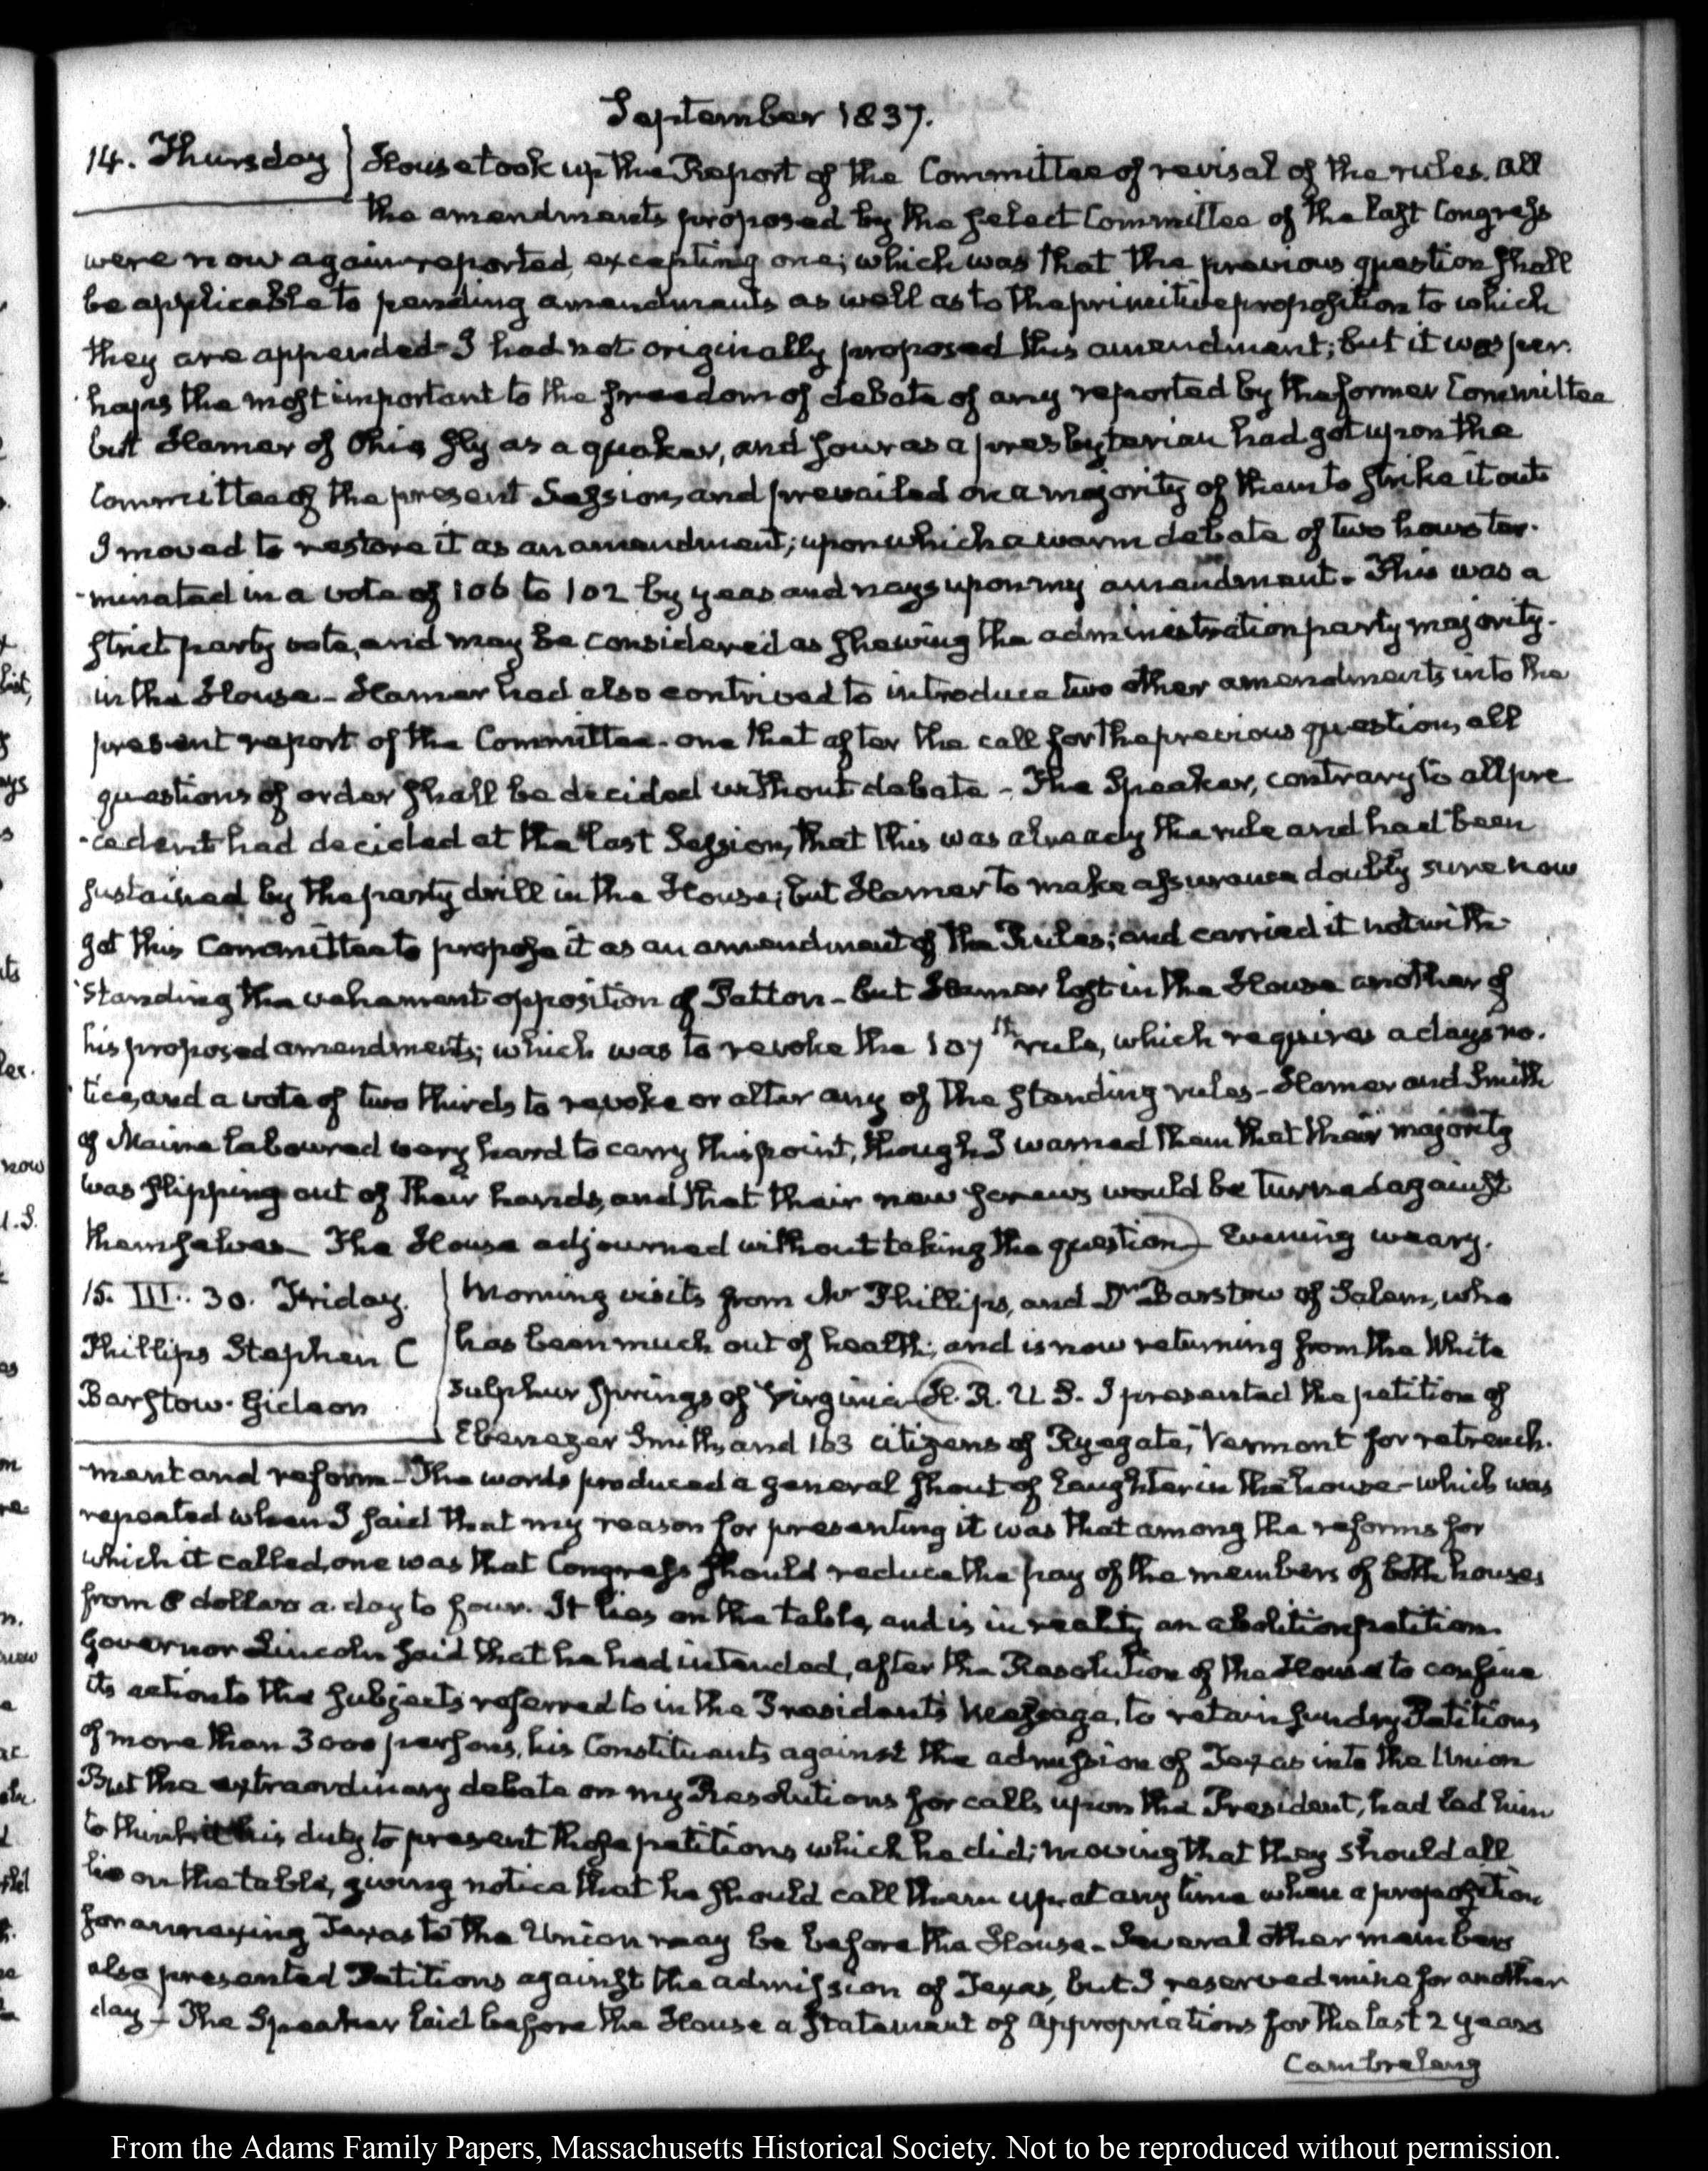 September 1837.
14. Thursday House took up the Report of the Committee of revisal of the rules. All
the amendments proposed by the select Committee of the last Congress
were now again reported, excepting one; which was that the previous question shall
be applicable to pending amendments as well as to the primitive proposition to which
they are appended - I had not originally proposed this amendment; but it was per-
haps the most important to the freedom of debate of any reported by the former Committee
but Hamer of Ohio sly as a quaker, and sour as a presbyterian had got upon the
Committee of the present Session, and prevailed on a majority of them to strike it out
I moved to restore it as an amendment; upon which a warm debate of two hours ter-
-minated in a vote of 106 to 102 by yeas and nays upon my amendment - This was a
strict party vote, and may be considered as shewing the administration party majority.
in the House - Hamer had also contrived to introduce two other amendments into the
present report of the Committee - one that after the call for the previous question, all
questions of order shall be decided without debate - The Speaker, contrary to all pre
-cedent had decided at the last Session, that this was already the rule and had been
sustained by the party drill in the House; but Hamer to make assurance doubly sure now
got this Committee to propose it as an amendment of the Rules; and carried it notwith-
standing the vehement opposition of Patton - but Hamer lost in the House another of
his proposed amendments; which was to revoke the 107th rule, which requires a days no-
tice, and a vote of two thirds to revoke or alter any of the standing rules - Hamer and Smith
of Maine laboured very hard to carry this point, though I warned them that their majority
was slipping out of their hands, and that their new screws would be turned against
themselves - The House adjourned without taking the question - Evening weary.
15. III. 30. Friday. Morning visits from Mr Phillips, and Dr Barstow of Salem, who
Phillips Stephen C has been much out of health, and is now returning from the White
Barstow. Gideon Sulphur Springs of Virginia - H. R. U. S. I presented the petition of
Ebenezer Smith, and 163 citizens of Ryegate, Vermont for retrench-
-ment and reform - The words produced a general shout of laughter in the house - which was
repeated when I said that my reason for presenting it was that among the reforms for
which it called, one was that Congress should reduce the pay of the members of both houses
from 8 dollars a day to four. It lies on the table, and is in reality an abolition petition.
Governor Lincoln said that he had intended, after the Resolution of the House to confine
its action to the subjects referred to in the President's Message, to retain sundry Petitions
of more than 3000 persons, his Constituents against the admission of Texas into the Union
But the extraordinary debate on my Resolutions for calls upon the President, had led him
to think it his duty to present those petitions which he did; moving that they should all
lie on the table, giving notice that he should call them up at any time when a proposition
for annexing Texas to the Union may be before the House - Several other members
also presented Petitions against the admission of Texas, but I reserved mine for another
day - The Speaker laid before the House a statement of appropriations for the last 2 years
Cambreleng
From the Adams Family Papers, Massachusetts Historical Society. Not to be reproduced without permission.